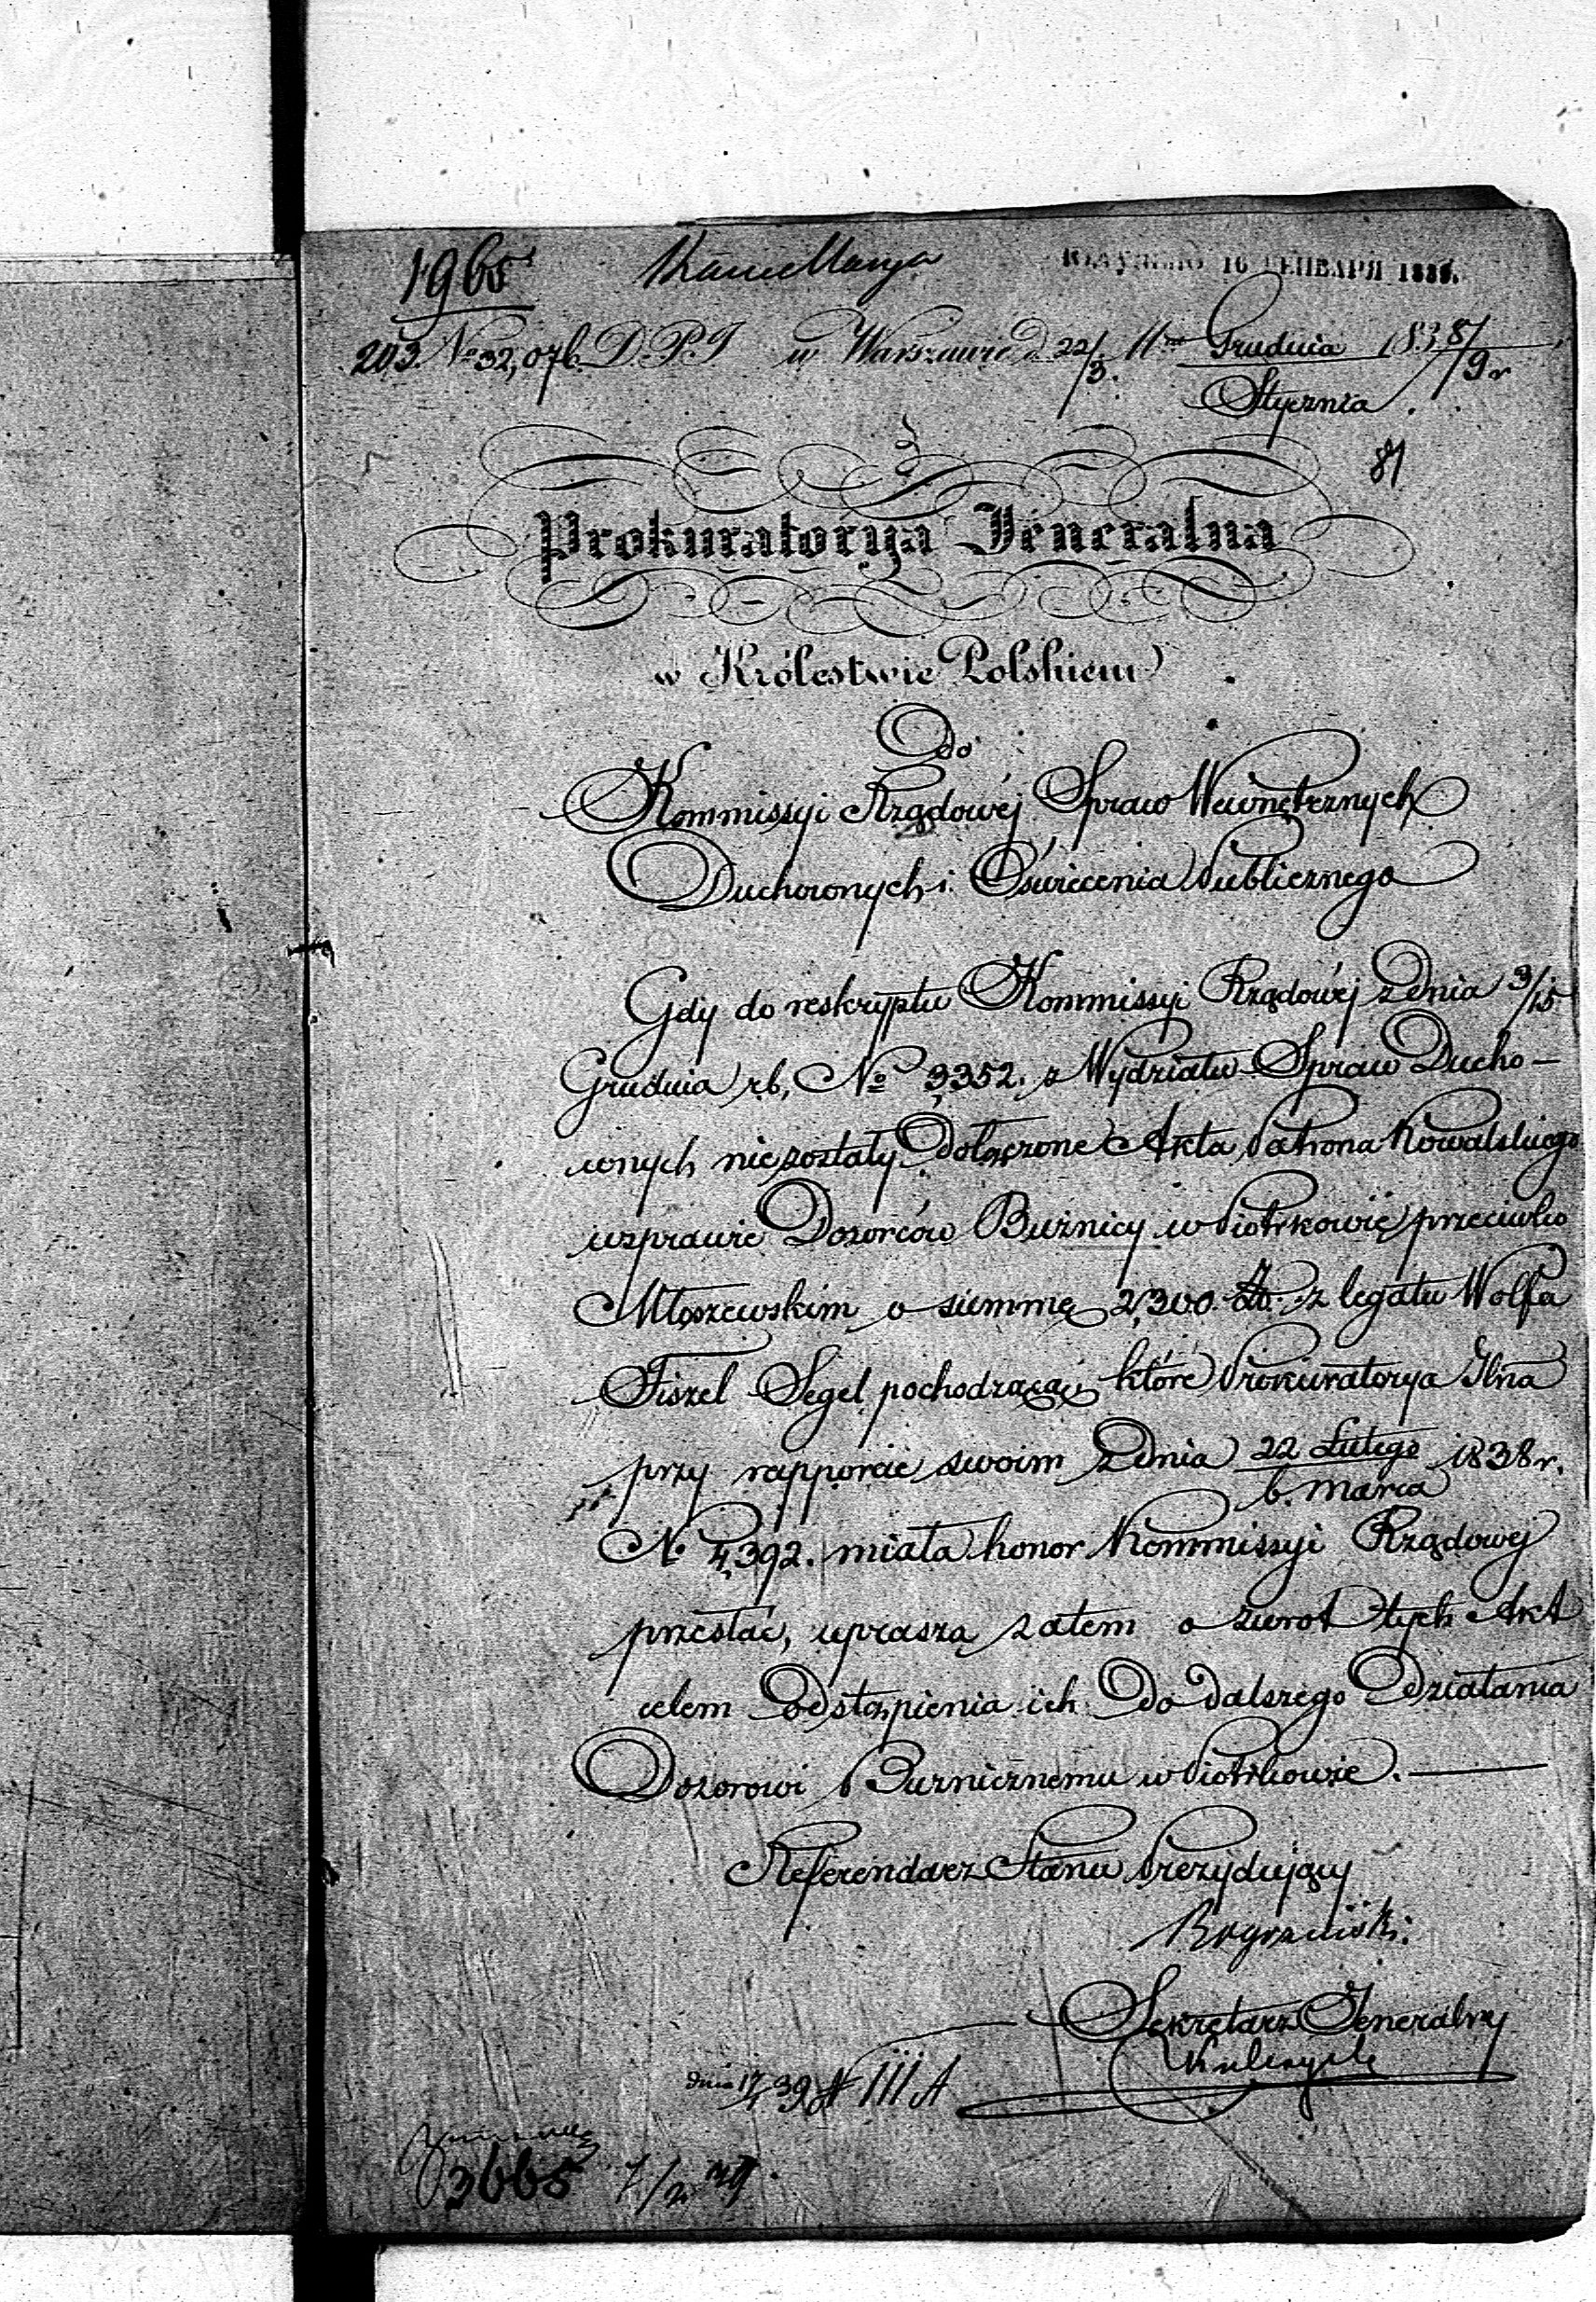 1965
10 ГЕНВАРЯ 1839.
203. No 32,076. D.P.J w Warszawie d. 22/3. Mca Grudnia 1838/9 r
Stycznia.
81
Prokuratorya Jeneralna
w Królestwie Polskiem
Do
Kommissyi Rządowéj Spraw Wewnętrznych
Duchownych i Oświecenia Publicznego
Gdy do reskryptu Kommissyi Rządowéj z dnia 3/15
Grudnia r.b, No 3352. z Wydziału Spraw Ducho-
wnych nie zostały dołączone Akta Patrona Kowalskiego
w sprawie Dozorców Bużnicy w Piotrkowie przeciwko
Młoszewskim o summę 2,300. Zło. z legatu Wolfa
Fiszel Segel pochodzącą, które Prokuratorya Jlna
przy rapporcie swoim z dnia 22 Lutego 1838 r.
6. Marca
No 4,392. miała honor Kommissyi Rządowej
przesłać, uprasza zatem o zwrot tych Akt
celem odstąpienia ich do dalszego działania
Dozorowi Buznicznemu w Piotrkowie.
Referendarz Stanu Prezydujący
Sekretarz Jeneralny
dnia 17/1 39 N III A
3665 7/2 39